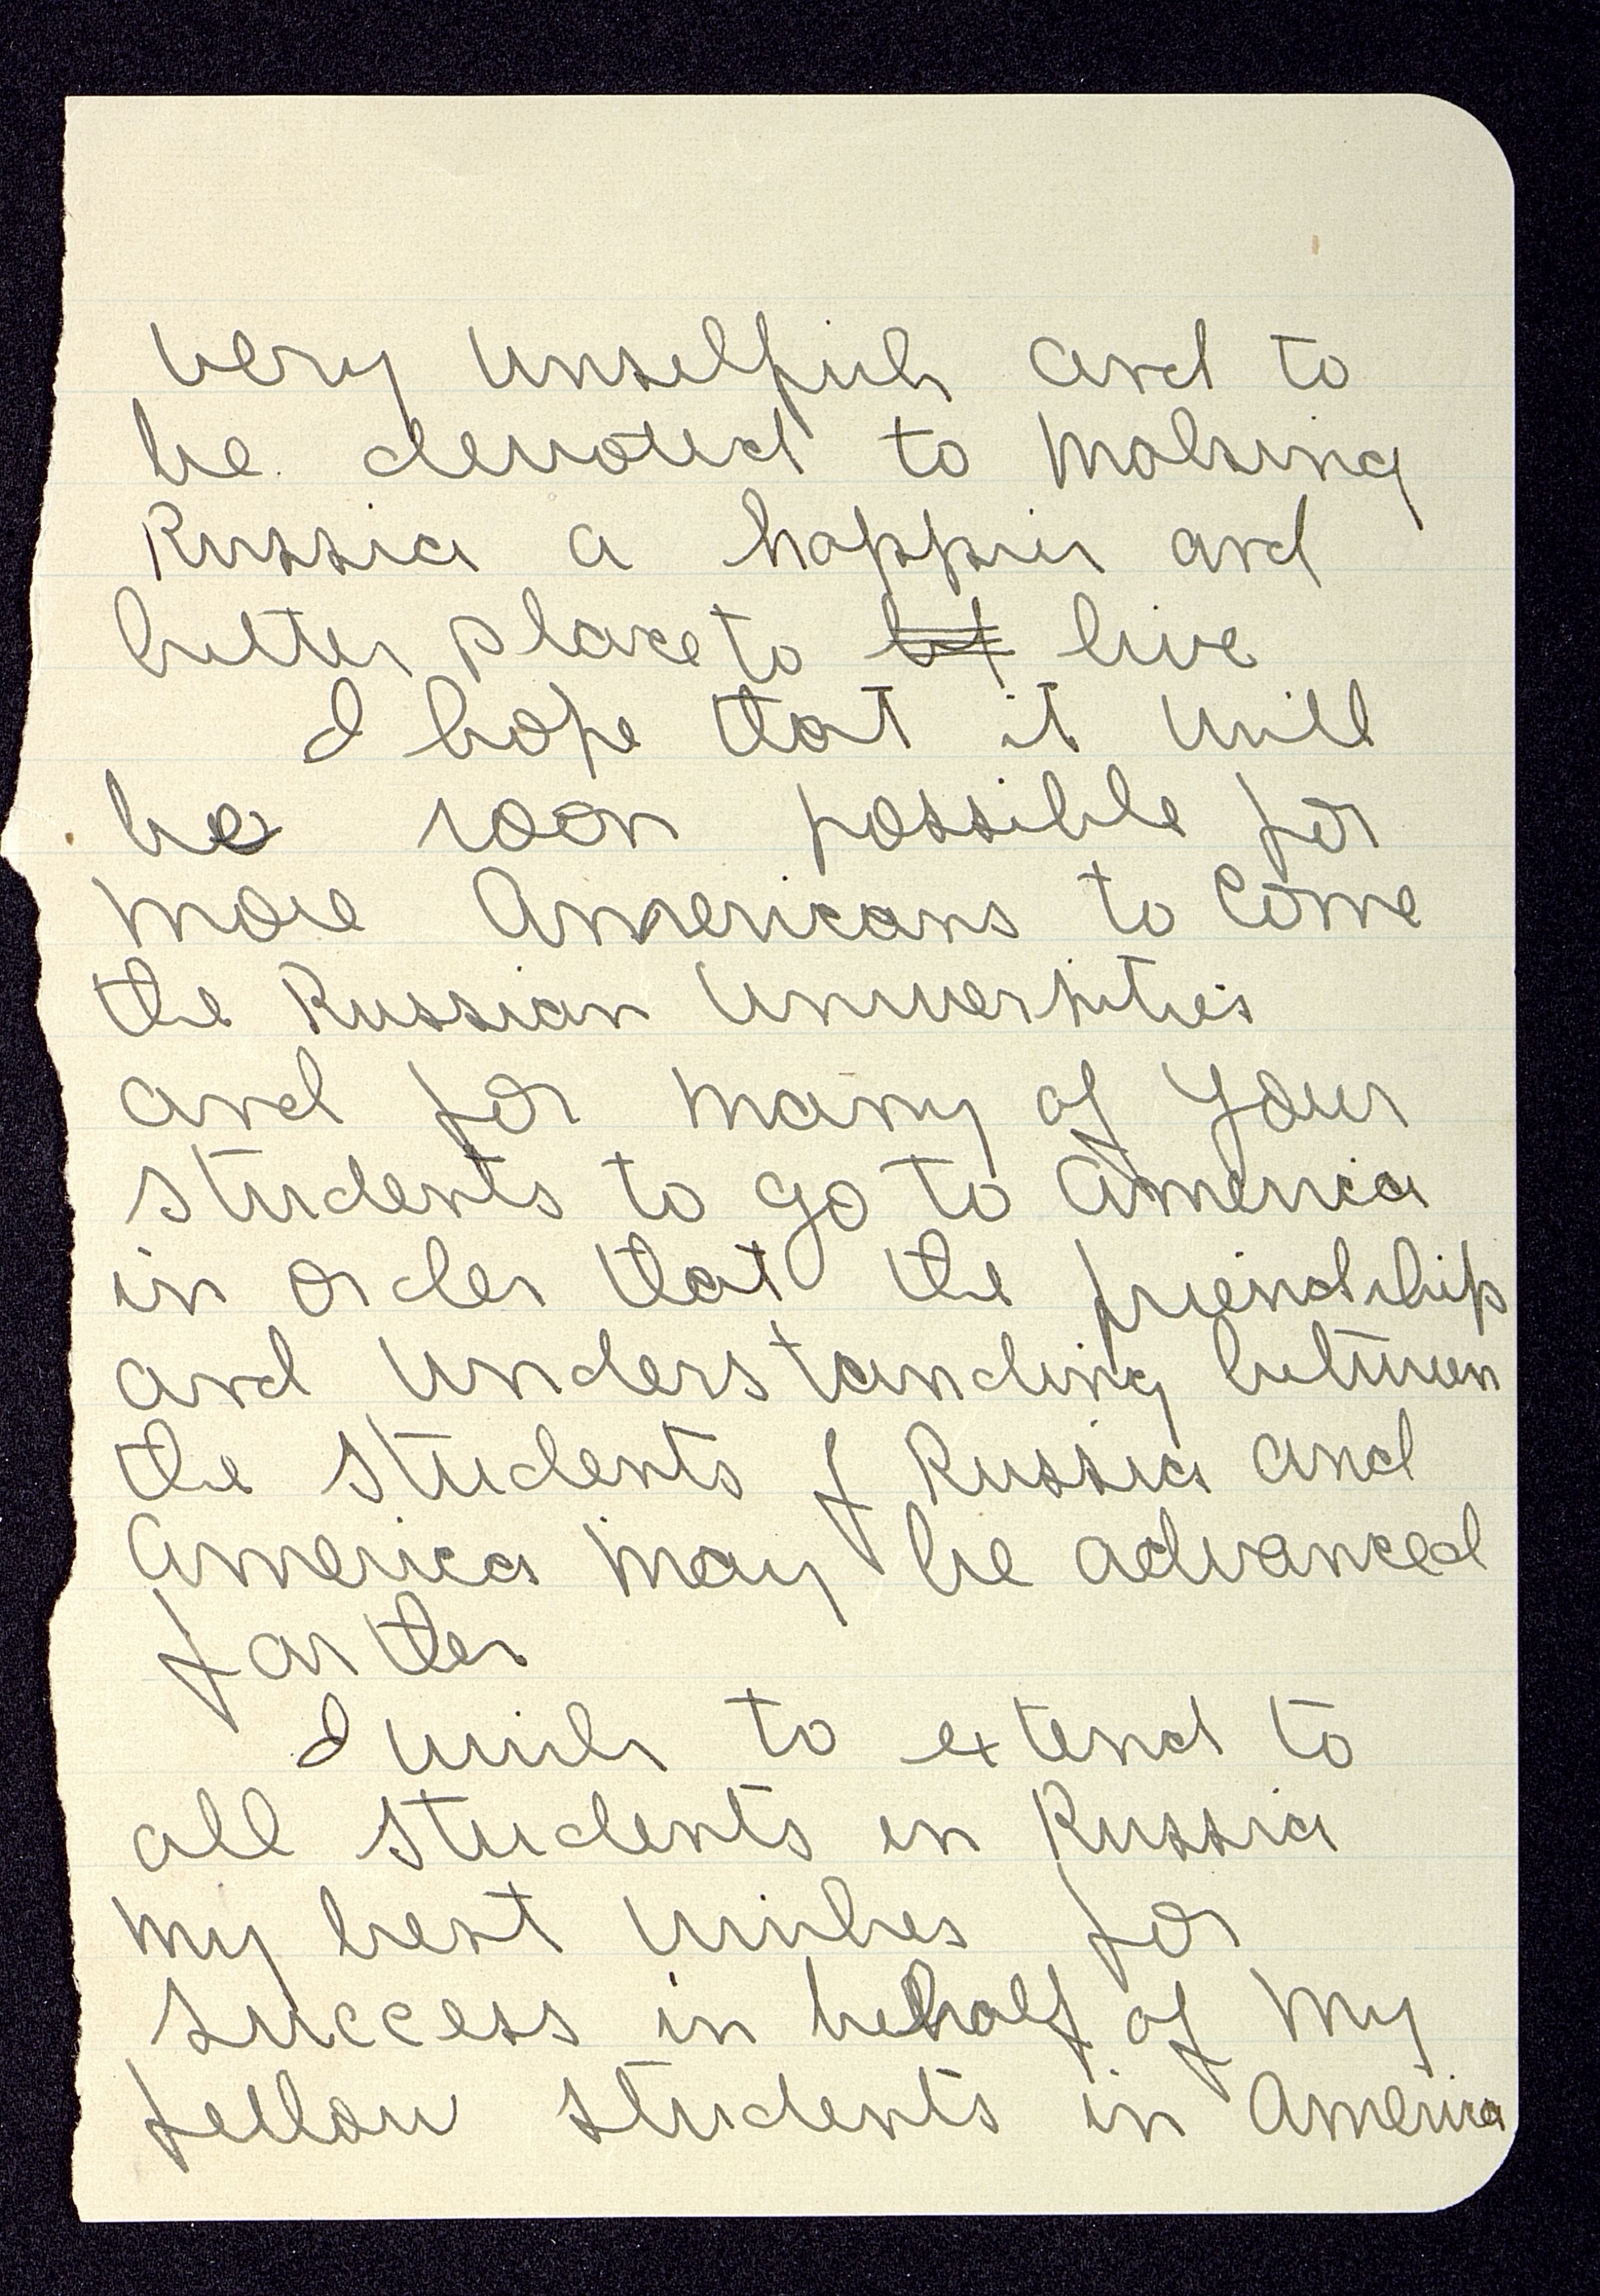 very unselfish and to
be devoted to making
Russia a happier and
better place to live
I hope that it will
be soon possible for
more Americans to come
the Russian Universities
and for many of your
students to go to America
in order that the friendship
and understanding between
the students of Russia and
America may be advanced
farther
I wish to extend to
all students in Russia
my best wishes for
success in behalf of my
fellow students in America